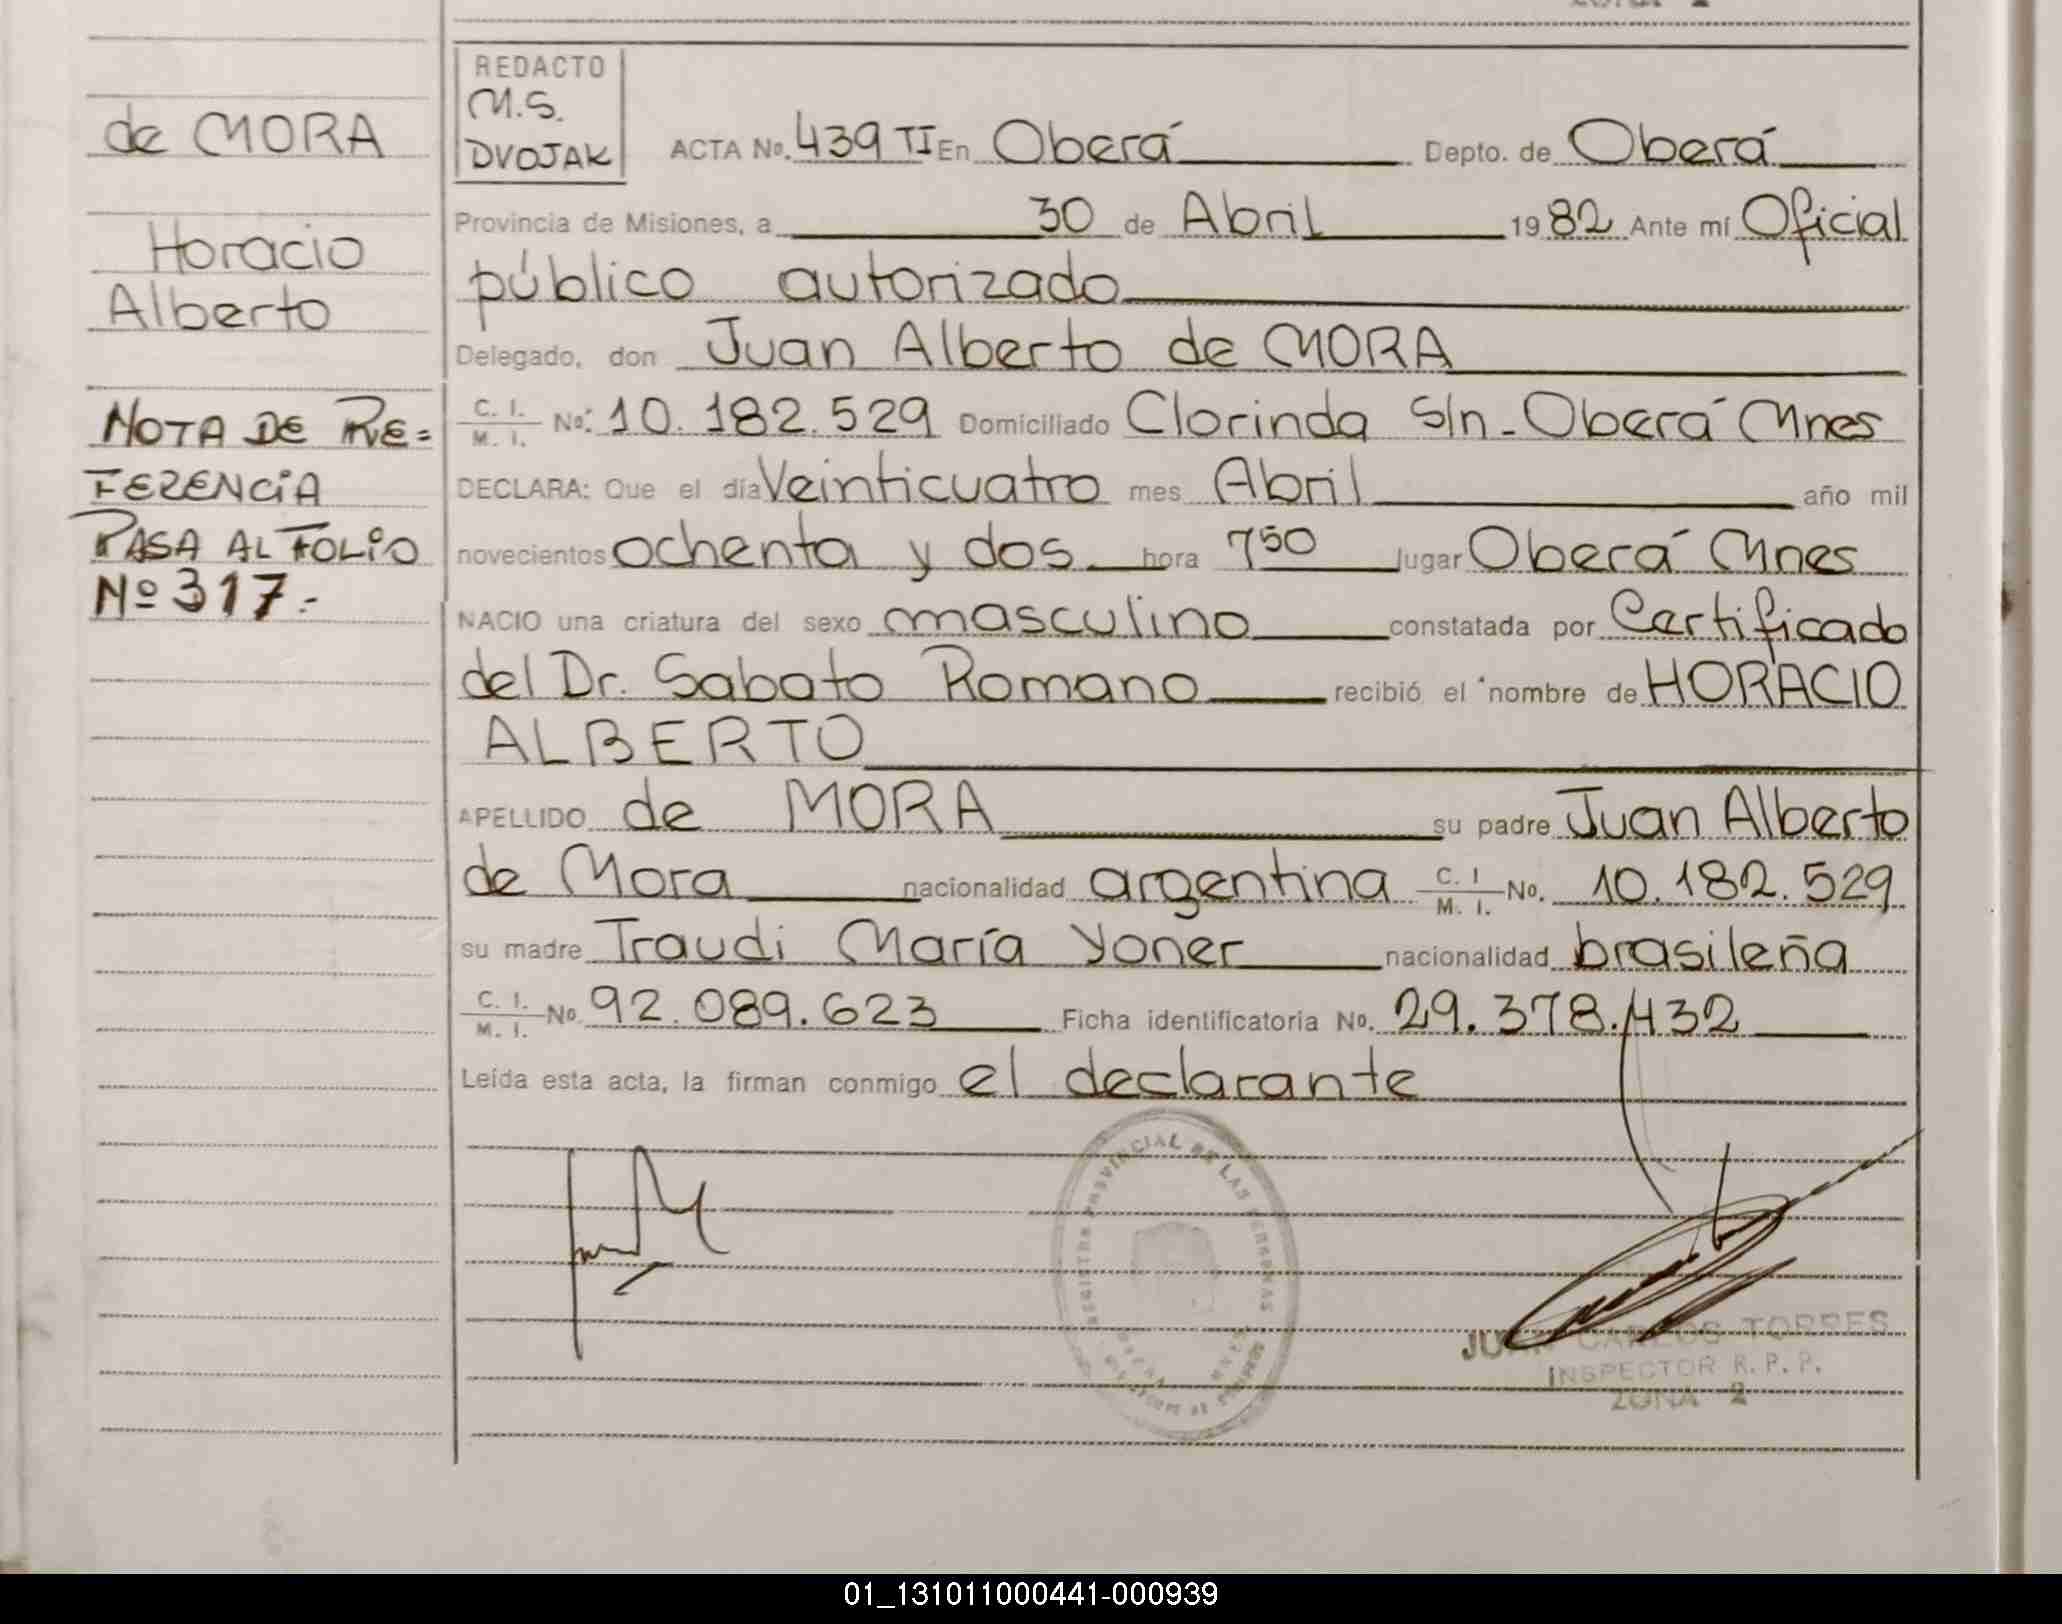 de MORA
Horacio
Alberto
NOTA DE RE=
FERENCiA
PASA AL FOLiO
Nº 317.-
REDACTO
M.S.
DVOJAK
ACTA No. 439 TI En Oberá Depto. de Oberá
Provincia de Misiones, a 30 de Abril 1982 Ante mí Oficial
público autorizado
Delegado, don Juan Alberto de MORA
C. I. / M. I. No: 10.182.529 Domiciliado Clorinda s/n - Oberá Mnes
DECLARA: Que el día Veinticuatro mes Abril año mil
novecientos ochenta y dos hora 7⁵⁰ lugar Oberá Mnes
NACIO una criatura del sexo masculino constatada por Certificado
del Dr. Sabato Romano recibió el nombre de HORACIO
ALBERTO
APELLIDO de MORA su padre Juan Alberto
de Mora nacionalidad argentina C. I / M. I. No. 10.182.529
su madre Traudi María Yoner nacionalidad brasileña
C. I. / M. I. No. 92.089.623 Ficha identificatoria No. 29.378.432
Leída esta acta, la firman conmigo el declarante
PROVINCIAL DE LAS PERSONAS
JUAN CARLOS TORRES
INSPECTOR R. P. P.
ZONA 2
01_131011000441-000939